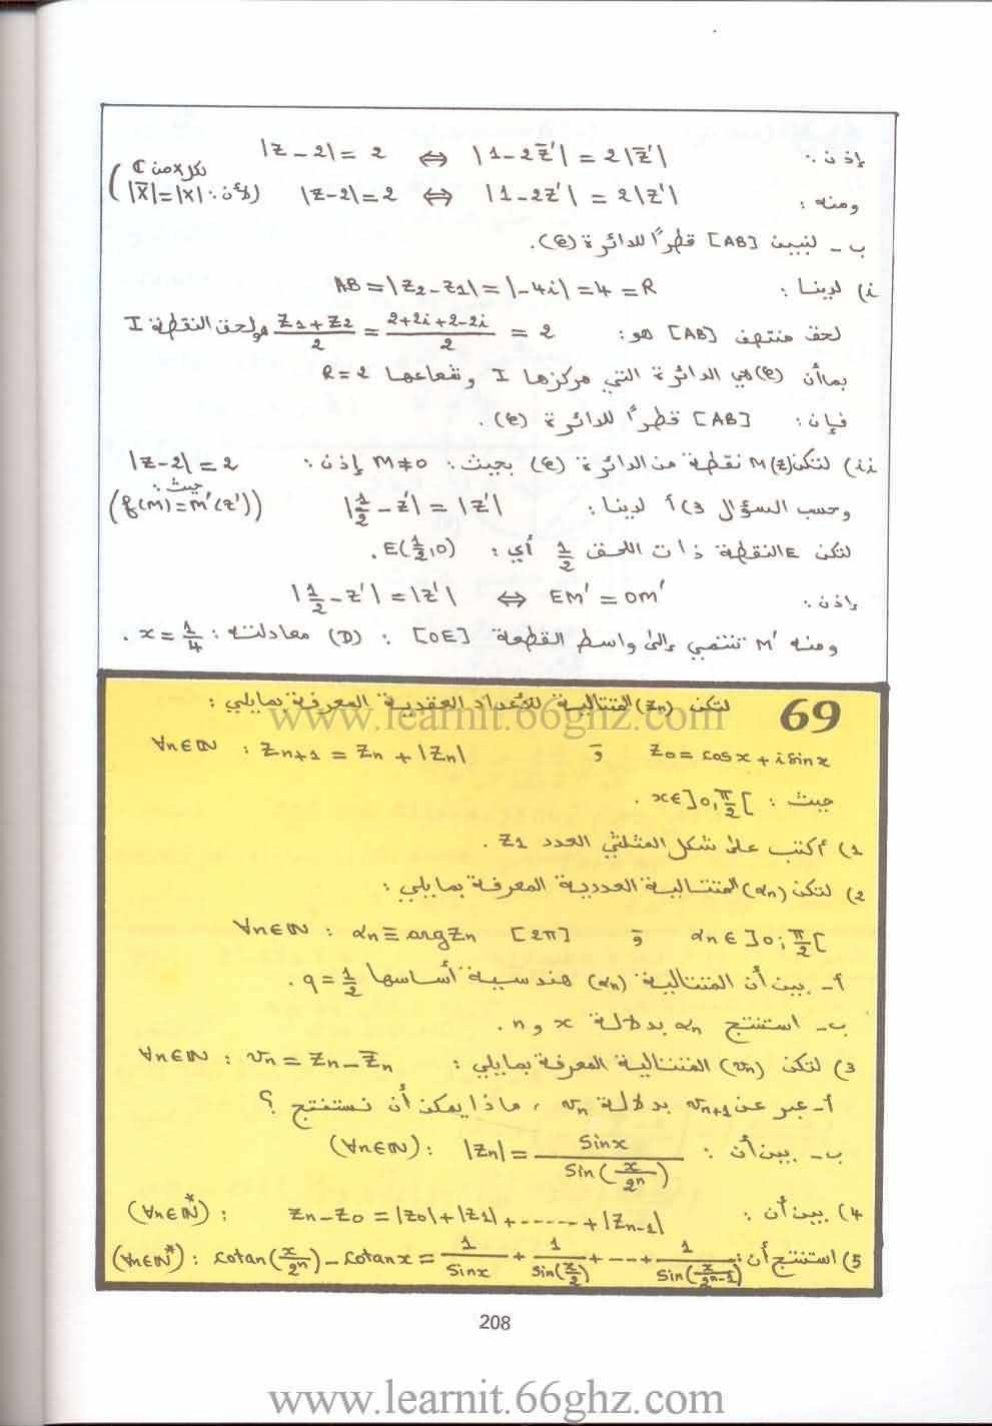 إذن : |z - 2| = 2 ⇔ |1 - 2z̄'| = 2|z̄'|
ومنه : |z-2| = 2 ⇔ |1 - 2z'| = 2|z'| (لأن : |x̄| = |x| لكل x من ℂ)
ب - لنبين [AB] قطرًا للدائرة (C).
i) لدينا : AB = |z₂ - z₁| = |-4i| = 4 = R
لحق منتصف [AB] هو : (z₁+z₂)/2 = (2+2i+2-2i)/2 = 2 هو لحق النقطة I
بما أن (C) هي الدائرة التي مركزها I وشعاعها R = 2
فإن : [AB] قطرًا للدائرة (C).
ii) لتكن M(z) نقطة من الدائرة (C) بحيث : M≠0 إذن : |z-2| = 2
وحسب السؤال 3) أ لدينا : |1/2 - z'| = |z'| (حيث : f(M) = M'(z'))
لتكن E النقطة ذات اللحق 1/2 أي : E(1/2,0).
إذن : |1/2 - z'| = |z'| ⇔ EM' = OM'
ومنه M' تنتمي إلى واسط القطعة [OE] : (D) معادلته : x = 1/4.
69 لتكن (zn) المتتالية للأعداد العقدية المعرفة بمايلي :
z₀ = cosx + i sinx و ∀n∈ℕ : zn+1 = zn + |zn|
حيث : x∈]0,π/2[.
1) أكتب على شكل المثلثي العدد z₁.
2) لتكن (αn) المتتالية العددية المعرفة بمايلي :
αn ∈ ]0;π/2[ و ∀n∈ℕ : αn ≡ arg zn [2π]
أ- بين أن المتتالية (αn) هندسية أساسها q = 1/2.
ب- استنتج αn بدلالة x و n.
3) لتكن (vn) المتتالية المعرفة بمايلي : ∀n∈ℕ : vn = zn - z̄n
أ- عبر عن vn+1 بدلالة vn ، ماذا يمكن أن نستنتج ؟
ب- بين أن : |zn| = sinx / sin(x/2ⁿ) : (∀n∈ℕ)
4) بين أن : zn - z₀ = |z₀| + |z₁| + ...... + |zn-1| : (∀n∈ℕ*)
5) استنتج أن : 1/sinx + 1/sin(x/2) + --- + 1/sin(x/2ⁿ⁻¹) = cotan(x/2ⁿ) - cotan x : (∀n∈ℕ*)
208
www.learnit.66ghz.com
www.learnit.66ghz.com